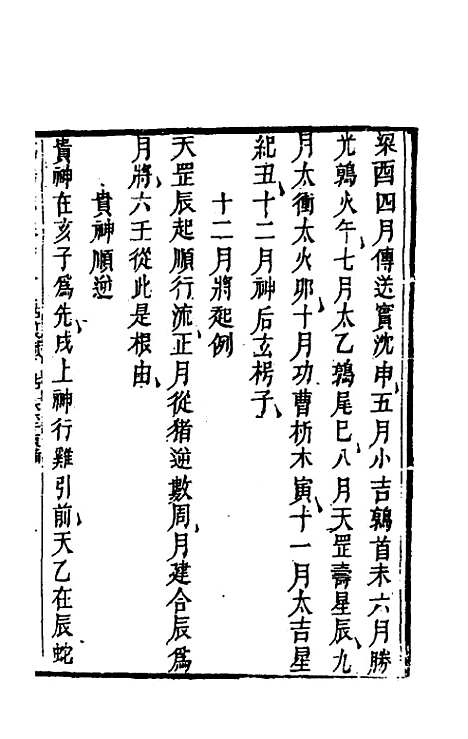 梁酉四月傳送實沈申五月小吉鶉首未六月勝
光鶉火午七月太乙鶉尾巳八月天罡壽星辰九
月太衝太火卯十月功曹析木寅十一月太吉星
紀丑十二月神后玄枵子
十二月將起例
天罡辰起順行流正月從猪逆數周月建合辰爲
月將六壬從此是根由
貴神順逆
貴神在亥子爲先戌上神行雞引前天乙在辰蛇